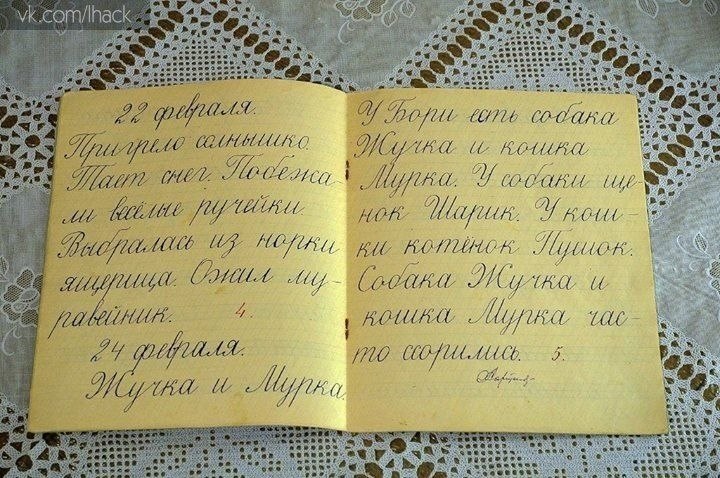 vk.com/lhack
22 февраля.
Пригрело солнышко.
Тает снег. Побежа-
ли весёлые ручейки.
Выбралась из норки
ящерица. Ожил му-
равейник. 4.
24 февраля.
Жучка и Мурка.
У Бори есть собака
Жучка и кошка
Мурка. У собаки ще-
нок Шарик. У кош-
ки котёнок Пушок.
Собака Жучка и
кошка Мурка час-
то ссорились. 5.